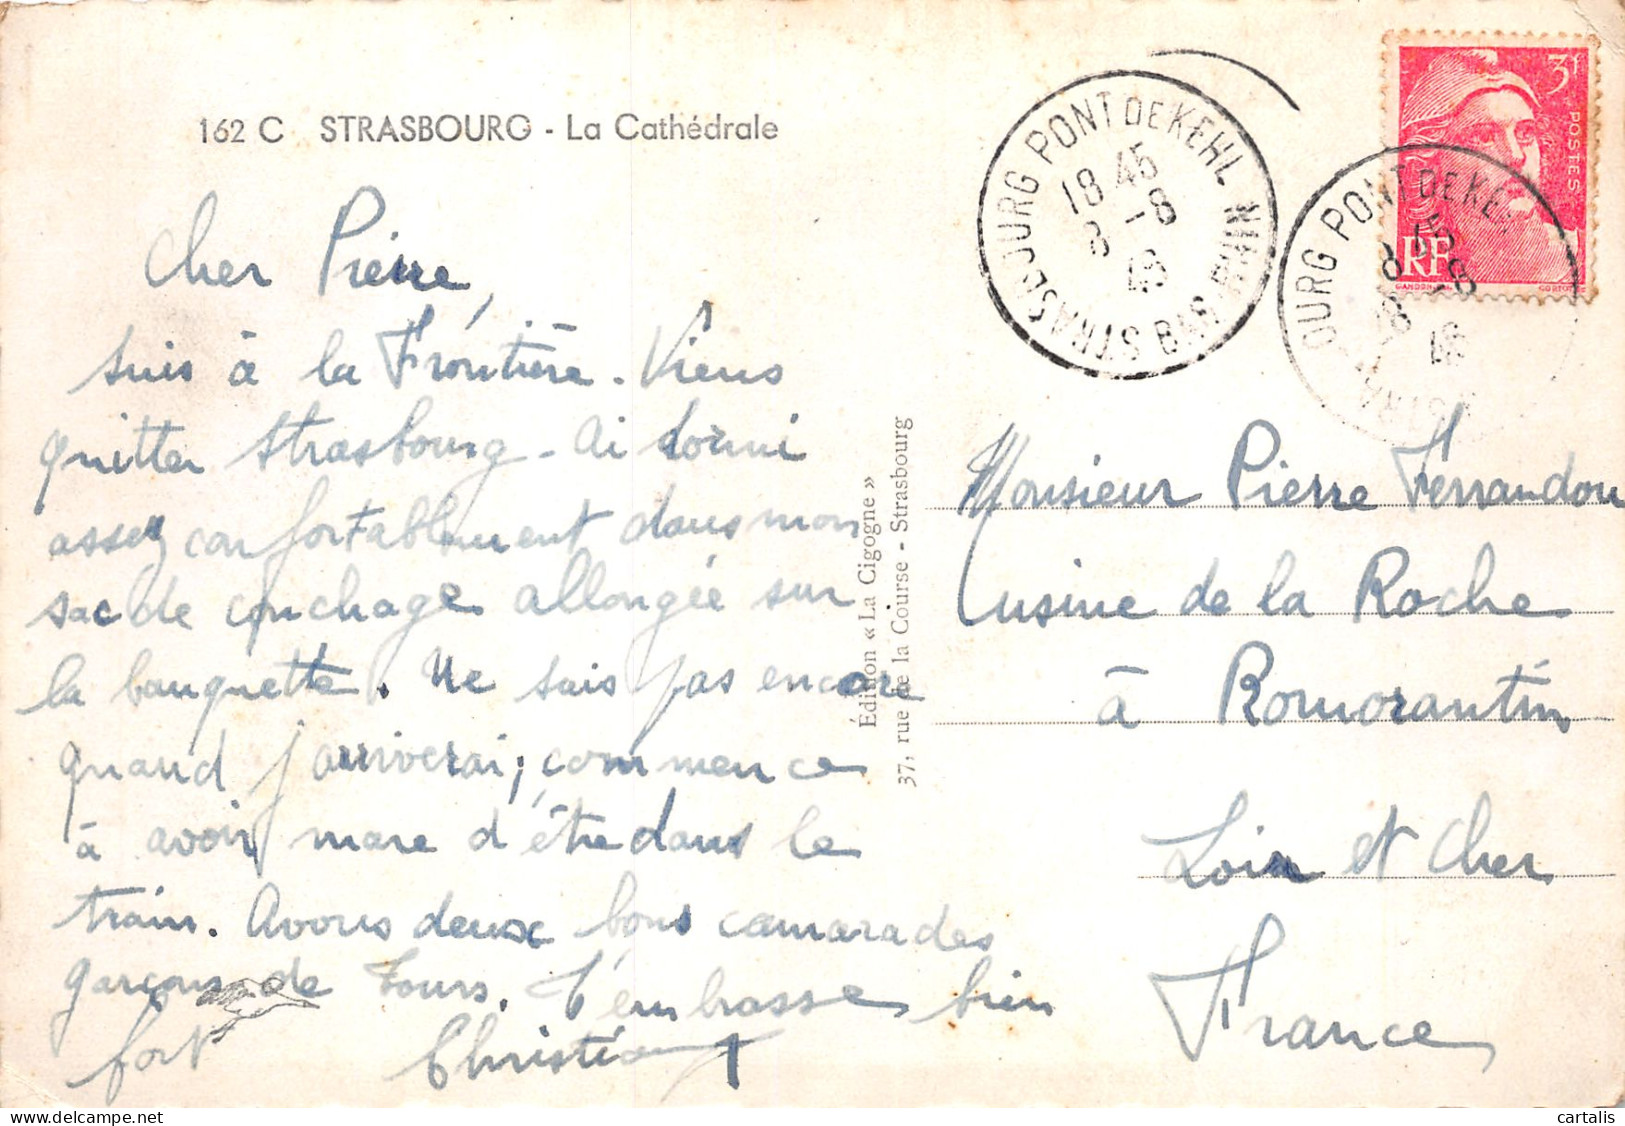 162 C STRASBOURG - La Cathédrale
Cher Pierre,
suis à la Frontière. Viens
quitter Strasbourg. Ai dormi
assez confortablement dans mon
sac de couchage allongée sur
la banquette. Ne sais pas encore
quand j'arriverai, commence
à avoir mare d'être dans le
train. Avons deux bons camarades
garçons de Tours. T'embrasse bien
fort Christiane
Édition « La Cigogne »
37, rue de la Course - Strasbourg
STRASBOURG PONT DE KEHL
BAS-RHIN
18 45
8 - 8
46
3f
POSTES
RF
GANDON
OURG PONT DE KEHL
STRA
46
Monsieur Pierre Ferrandon
Usine de la Roche
à Romorantin
Loir et Cher
France
cartalis